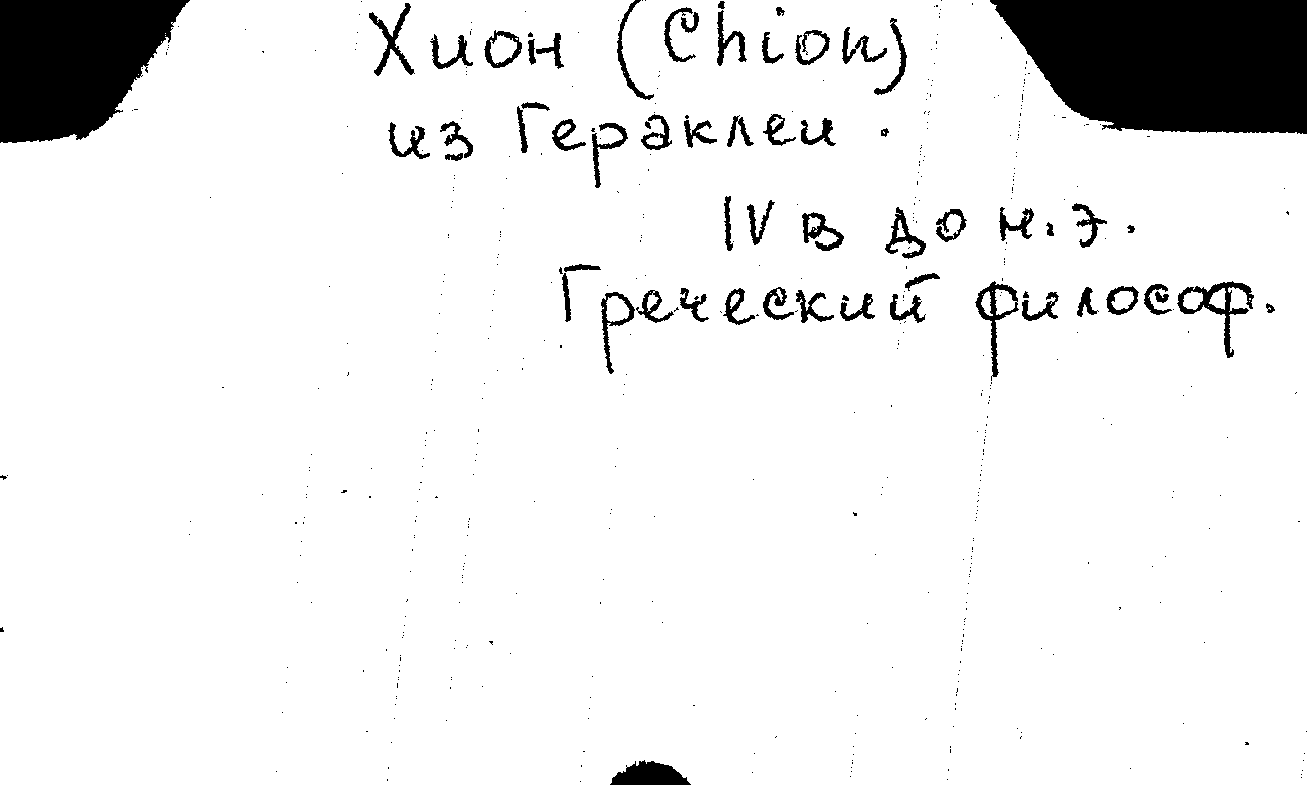 Хион (Chion)
из Гераклеи.
IV в до н.э.
Греческий философ.